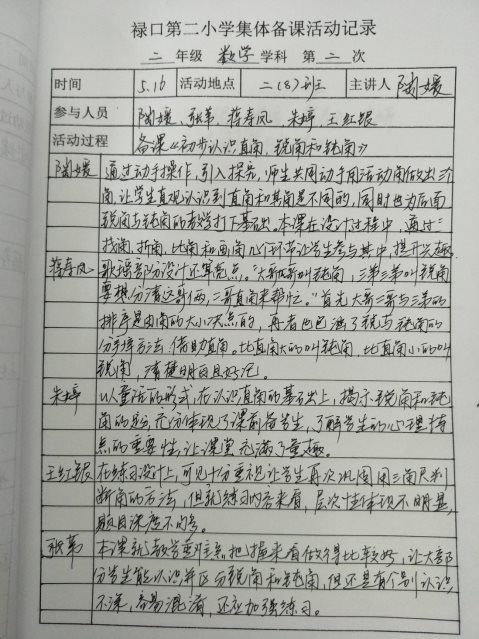 禄口第二小学集体备课活动记录
二 年级 数学 学科 第 二 次
时间 5.16 活动地点 二(8)班 主讲人 陶媛
参与人员 陶媛、张苇、蒋寿凤 朱婷 王红银
活动过程 备课《初步认识直角、锐角和钝角》
陶媛 通过动手操作,引入探究,师生共同动手用活动角做出三个
角,让学生直观认识到直角和其角是不同的,同时也为后面
锐角与钝角的教学打下基础。本课在设计过程中,通过:
找角、折角、比角和画角几个环节让学生参与其中,提升兴趣。
蒋寿凤 歌谣部分设计还算亮点。“大哥哥叫钝角,三弟三弟叫锐角
要想分清这哥俩,二哥直角来帮忙。”首先大哥二哥与三弟的
排序是由角的大小决定的,再者也包涵了锐与钝角的
分辨方法,借助直角。比直角大的叫钝角,比直角小的叫
锐角,清楚明白且好记。
朱婷 以童话的形式,在认识直角的基础上,揭示锐角和钝
角的定义,充分体现了课前备学生,了解学生的心理特
点的重要性,让课堂充满了童趣。
王红银 在练习设计上,可见十分重视让学生再次巩固用三角尺判
断角的方法,但就练习内容来看,层次性体现不明显,
题目深度不够。
张苇 本课就教学重难点把握来看做得比较好,让大部
分学生能认识并区分锐角和钝角,但还是有个别认识
不深,容易混淆,还应加强练习。